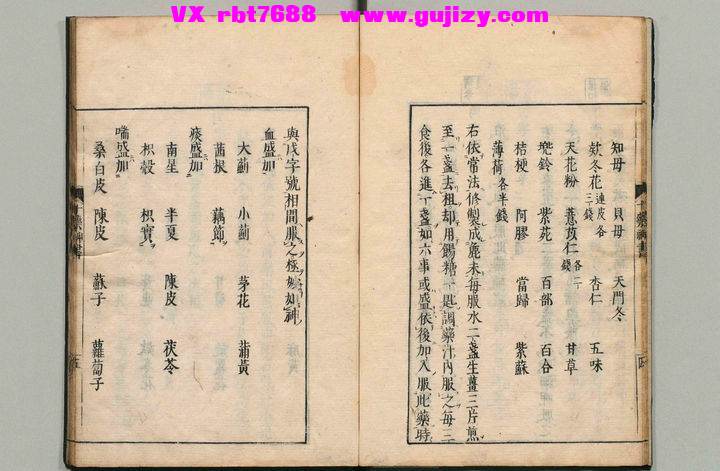 VX rbt7688 www.gujizy.com
知母 貝母 天門冬
欵冬花 杏仁 五味
天花粉 薏苡仁 各二錢 甘草
兜鈴 紫苑 百部 百合
桔梗 阿膠 當歸 紫蘇
薄荷 各半錢
右依常法修製成麄末每服水二盞生薑三片煎
至一盞去柤却用餳糖一匙調藥汁內服之每三
食後各進一盞如六事或盛依後加入服此藥時
與戊字號相間服之極妙如神
血盛加
大薊 小薊 茅花 蒲黃
茜根 藕節
痰盛加
南星 半夏 陳皮 茯苓
枳殼 枳實
喘盛加
桑白皮 陳皮 蘇子 蘿蔔子